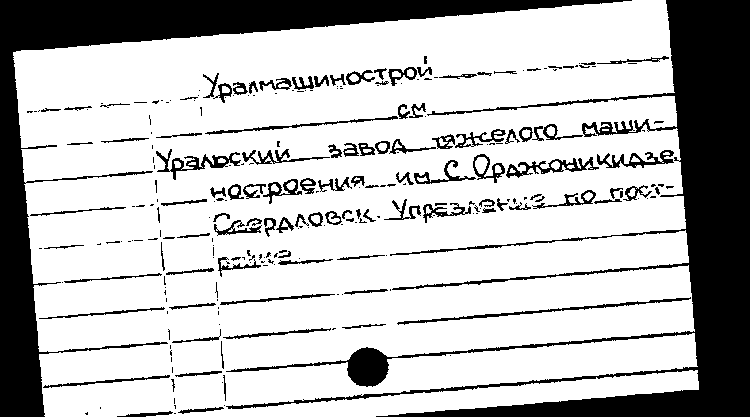 Уралмашинострой
см.
Уральский завод тяжелого маши-
ностроения им. С. Орджоникидзе.
Свердловск. Управление по пост-
ройке